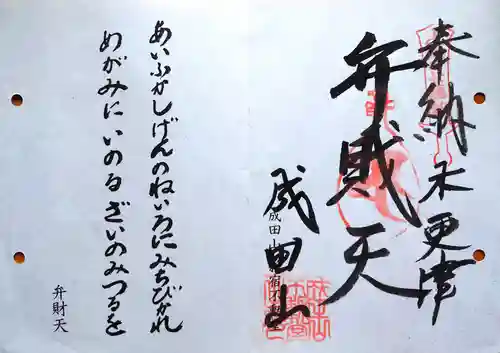 奉納 木更津
弁財天
成田山
あいふかしげんのねいろにみちびかれ
めがみにいのるざいのみつるを
弁財天